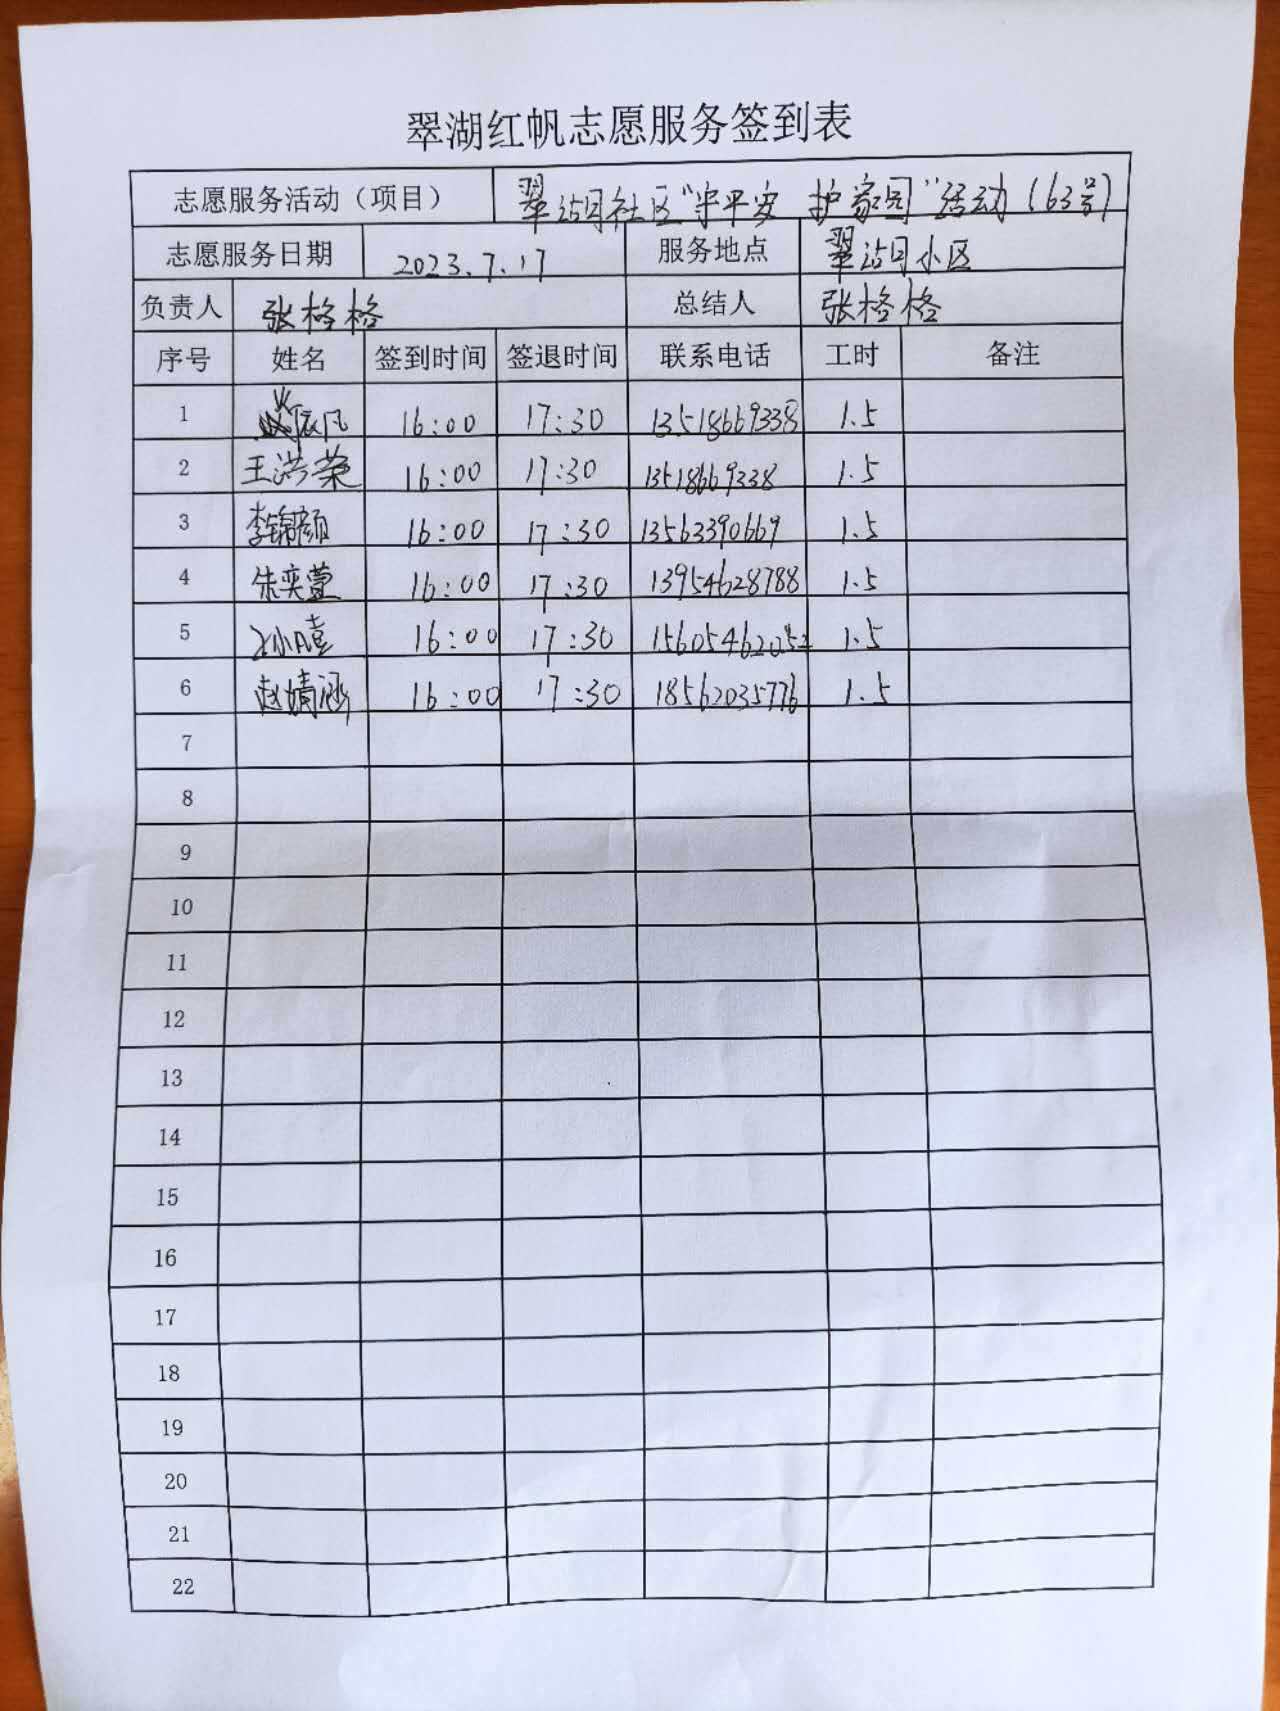 翠湖红帆志愿服务签到表
志愿服务活动（项目） 翠湖社区“守平安 护家园”活动（63号）
志愿服务日期 2023.7.17 服务地点 翠湖小区
负责人 张格格 总结人 张格格
序号 姓名 签到时间 签退时间 联系电话 工时 备注
1 16:00 17:30 13518669338 1.5
2 王洪荣 16:00 17:30 13518669338 1.5
3 李锦颜 16:00 17:30 13563390669 1.5
4 朱奕萱 16:00 17:30 13954628788 1.5
5 16:00 17:30 15605462052 1.5
6 赵婧涵 16:00 17:30 18562035776 1.5
7
8
9
10
11
12
13
14
15
16
17
18
19
20
21
22